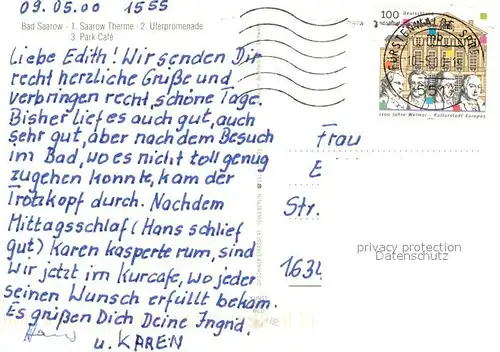 09.05.00 1555
Bad Saarow · 1. Saarow Therme · 2. Uferpromenade
3. Park Café
Liebe Edith! Wir senden Dir
recht herzliche Grüße und
verbringen recht schöne Tage.
Bisher lief es auch gut, auch
sehr gut, aber nach dem Besuch
im Bad, wo es nicht toll genug
zugehen konnte, kam der
Trotzkopf durch. Nachdem
Mittagsschlaf (Hans schlief
gut) Karen kasperte rum, sind
Wir jetzt im Kurcafe, wo jeder
seinen Wunsch erfüllt bekam.
Es grüßen Dich Deine Ingrid,
Hans
u. KAREN
100 Deutschland
FÜRSTENWALDE, SPREE
1100 Jahre Weimar - Kulturstadt Europas
Frau
E
Str.
1634
privacy protection
Datenschutz